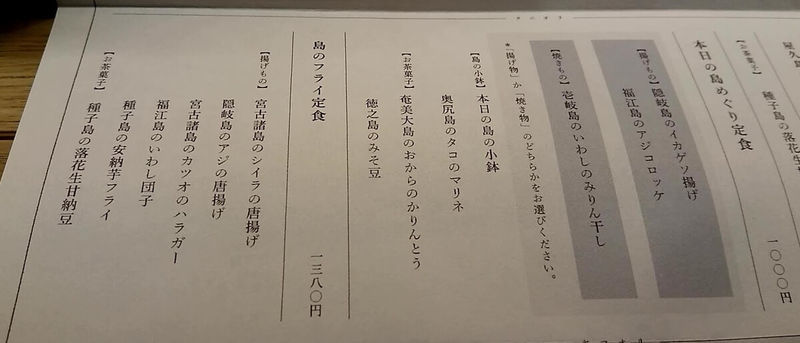 屋久島
【お茶菓子】 種子島の落花生
本日の島めぐり定食 一〇〇〇円
【揚げもの】 隠岐島のイカゲソ揚げ
福江島のアジコロッケ
【焼きもの】 壱岐島のいわしのみりん干し
*「揚げ物」か「焼き物」のどちらかをお選びください。
【島の小鉢】 本日の島の小鉢
奥尻島のタコのマリネ
【お茶菓子】 奄美大島のおからのかりんとう
徳之島のみそ豆
島のフライ定食 一三八〇円
【揚げもの】 宮古諸島のシイラの唐揚げ
隠岐島のアジの唐揚げ
宮古諸島のカツオのハラガー
福江島のいわし団子
種子島の安納芋フライ
【お茶菓子】 種子島の落花生甘納豆